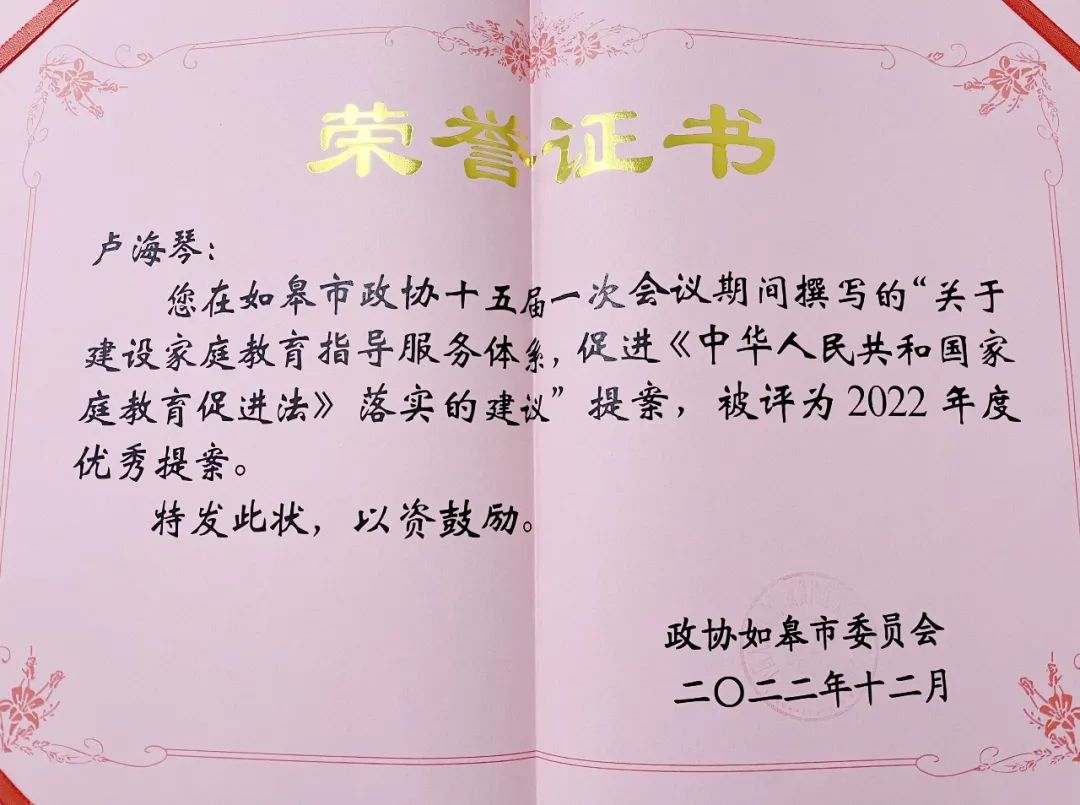 荣誉证书
卢海琴：
您在如皋市政协十五届一次会议期间撰写的“关于
建设家庭教育指导服务体系，促进《中华人民共和国家
庭教育促进法》落实的建议”提案，被评为2022年度
优秀提案。
特发此状，以资鼓励。
政协如皋市委员会
二〇二二年十二月